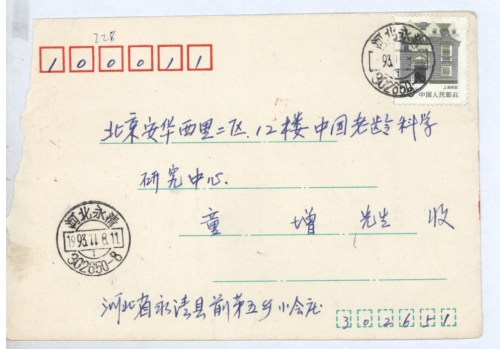 228
100011
河北永清
1993.11.8.11
302650-8
上海民居
中国人民邮政
北京安华西里二区.12楼中国老龄科学
研究中心.
童增先生 收
河北永清
1993.11.8.11
302650-8
河北省永清县前第五乡小会庄
302651